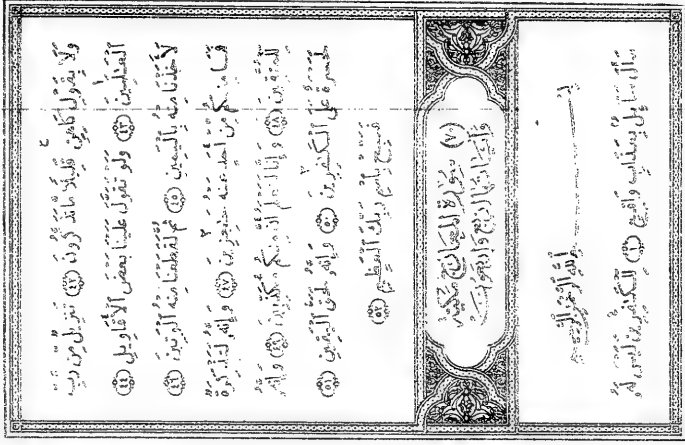 وَلَا بِقَوْلِ كَاهِنٍ قَلِيلًا مَّا تَذَكَّرُونَ ﴿٤٢﴾ تَنزِيلٌ مِّن رَّبِّ
ٱلْعَٰلَمِينَ ﴿٤٣﴾ وَلَوْ تَقَوَّلَ عَلَيْنَا بَعْضَ ٱلْأَقَاوِيلِ ﴿٤٤﴾
لَأَخَذْنَا مِنْهُ بِٱلْيَمِينِ ﴿٤٥﴾ ثُمَّ لَقَطَعْنَا مِنْهُ ٱلْوَتِينَ ﴿٤٦﴾
فَمَا مِنكُم مِّنْ أَحَدٍ عَنْهُ حَٰجِزِينَ ﴿٤٧﴾ وَإِنَّهُۥ لَتَذْكِرَةٌ
لِّلْمُتَّقِينَ ﴿٤٨﴾ وَإِنَّا لَنَعْلَمُ أَنَّ مِنكُم مُّكَذِّبِينَ ﴿٤٩﴾ وَإِنَّهُۥ
لَحَسْرَةٌ عَلَى ٱلْكَٰفِرِينَ ﴿٥٠﴾ وَإِنَّهُۥ لَحَقُّ ٱلْيَقِينِ ﴿٥١﴾
فَسَبِّحْ بِٱسْمِ رَبِّكَ ٱلْعَظِيمِ ﴿٥٢﴾
(٧٠) سُورَةُ المَعَارِجِ مَكِّيَّة
وَآيَاتُهَا أَرْبَعٌ وَأَرْبَعُونَ
بِسْمِ ٱللَّهِ ٱلرَّحْمَٰنِ ٱلرَّحِيمِ
سَأَلَ سَآئِلٌۢ بِعَذَابٍ وَاقِعٍ ﴿١﴾ لِّلْكَٰفِرِينَ لَيْسَ لَهُۥ